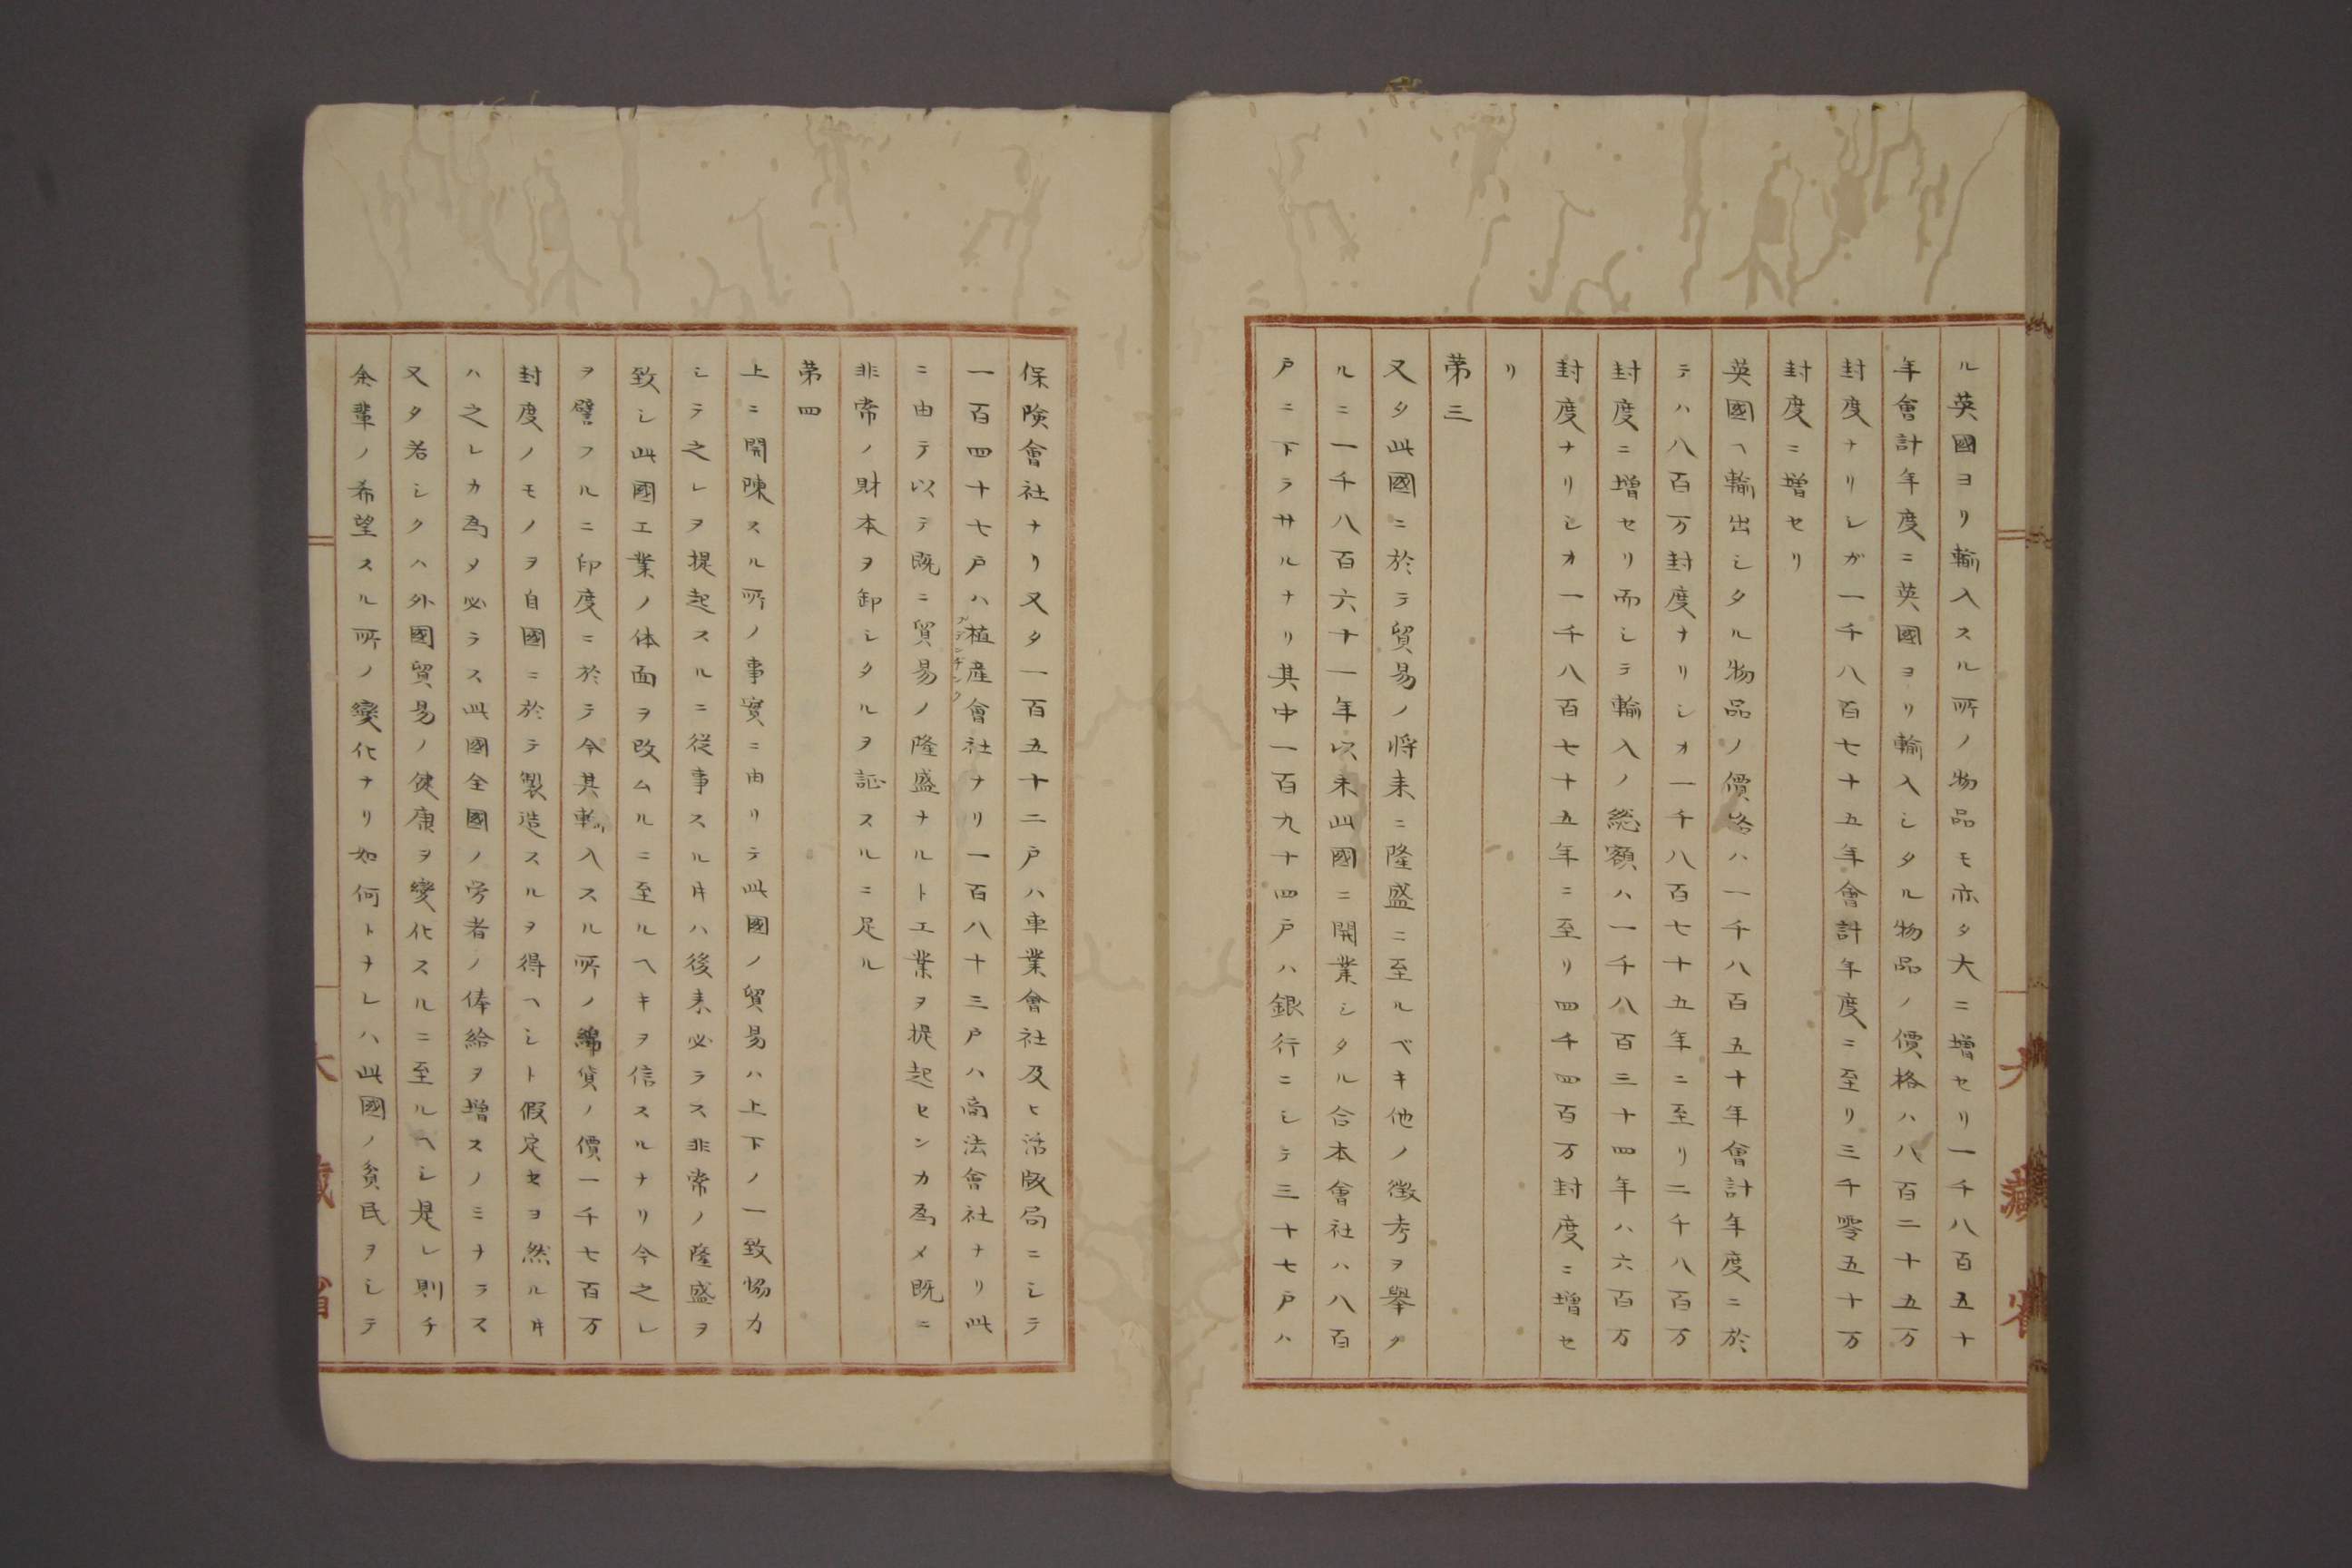 ル英國ヨリ輸入スル所ノ物品モ亦タ大ニ增セリ一千八百五十
年會計年度ニ英國ヨリ輸入シタル物品ノ價格ハ八百二十五万
封度ナリシガ一千八百七十五年會計年度ニ至リ三千零五十万
封度ニ增セリ
英國ヘ輸出シタル物品ノ價格ハ一千八百五十年會計年度ニ於
テハ八百万封度ナリシオ一千八百七十五年ニ至リ二千八百万
封度ニ增セリ而シテ輸入ノ総額ハ一千八百三十四年ハ六百万
封度ナリシオ一千八百七十五年ニ至リ四千四百万封度ニ增セ
リ
第三
又タ此國ニ於テ貿易ノ将来ニ隆盛ニ至ルベキ他ノ徴考ヲ舉ク
ルニ一千八百六十一年以来此國ニ開業シタル合本會社ハ八百
戸ニ下ラサルナリ其中一百九十四戸ハ銀行ニシテ三十七戸ハ
大藏省
保険會社ナリ又タ一百五十二戸ハ車業會社及ヒ活版局ニシテ
一百四十七戸ハ植産會社ナリ一百八十三戸ハ商法會社ナリ此
ニ由テ以テ既ニ貿易ノ隆盛ナルト工業ヲ提起センカ為メ既ニ
非常ノ財本ヲ卸シタルヲ証スルニ足ル
第四
上ニ開陳スル所ノ事實ニ由リテ此國ノ貿易ハ上下ノ一致協力
シテ之レヲ提起スルニ從事スル寸ハ後来必ラス非常ノ隆盛ヲ
致シ此國工業ノ体面ヲ改ムルニ至ルヘキヲ信スルナリ今之レ
ヲ譬フルニ印度ニ於テ今其輸入スル所ノ綿貨ノ價一千七百万
封度ノモノヲ自國ニ於テ製造スルヲ得ヘシト假定セヨ然ル寸
ハ之レカ為メ必ラス此國全國ノ労者ノ俸給ヲ增スノミナラス
又タ若シクハ外國貿易ノ健康ヲ變化スルニ至ルヘシ是レ則チ
余輩ノ希望スル所ノ變化ナリ如何トナレハ此國ノ貧民ヲシテ
大藏省